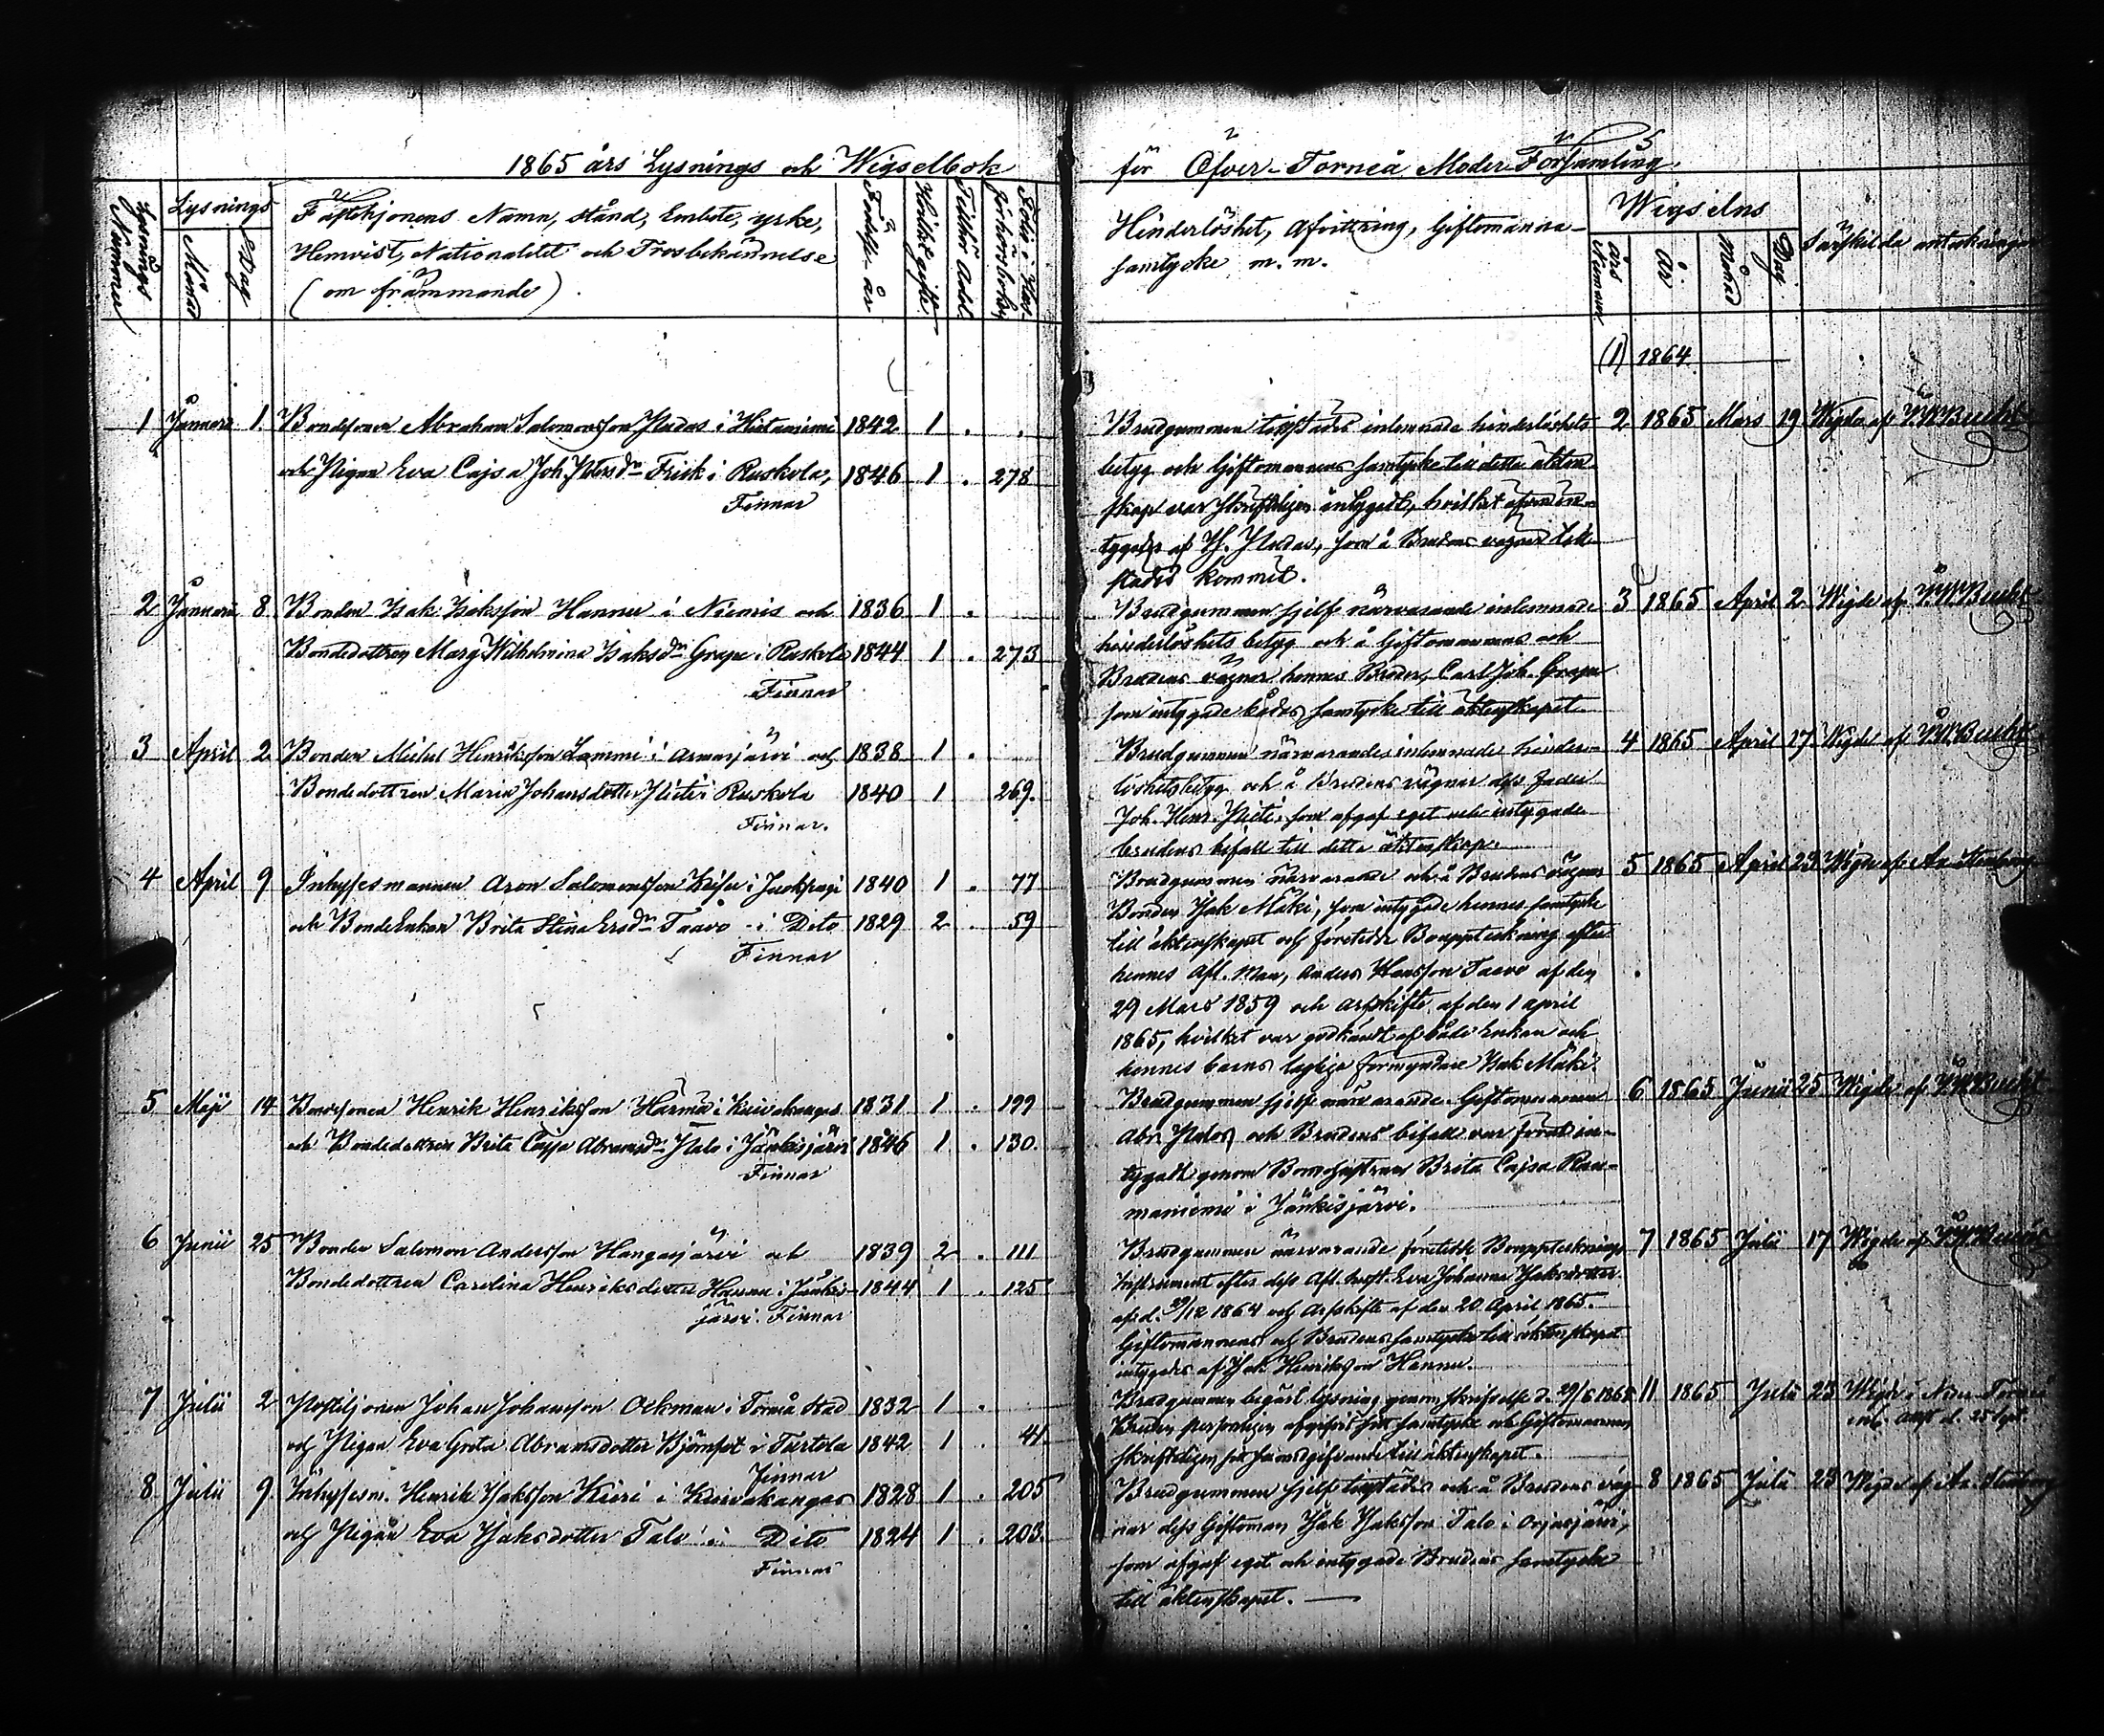 1865 års Lysnings och Wigselbok
Lysnings Nummer
Lysnings
Månad
Dag
Fästehjonens Namn, stånd, Embete, yrke,
Hemvist, Nationalitet och Trosbekännelse
(om främmande).
Födelse-år
Hvilket gifte
Tillhör Adel.
Folio i Hus-
förhörsboken
1 Januarii 1 Bondesonen Abraham Salomonsson i Hietaniemi 1842 1
och Pigan Eva Cajsa Joh. Petersdr Frisk i Ruskola, 1846 1 278
Finnar
2 Januarii 8 Bonden Isak Isaksson Hannu i Niemis och 1836 1
Bondedottren Marg. Wilhelmina Isaksdr Grape i Ruskola 1844 1 273
Finnar
3 April 2 Bonden Michel Henriksson Lammi i Armasjärvi och 1838 1
Bondedottren Maria Johansdotter i Ruskola 1840 1 269.
Finnar.
4 April 9 Inhysesmannen Aron Salomonsson i Juoksengi 1840 1 77
och BondeEnkan Brita Stina Ersdr Taavo i Dito 1829 2 59
Finnar
5 Maji 14 Bondsonen Henrik Henriksson Härmä i Kuivakangas 1831 1 199
och Bondedottren Brita Cajsa Abramsdr i Jänkisjärvi 1846 1 130.
Finnar
6 Junii 25 Bonden Salomon Andersson Hangasjärvi och 1839 2 111
Bondedottren Carolina Henriksdotter Hannu i Jänkis- 1844 1 125
järvi. Finnar
7 Julii 2 Postiljonen Johan Johansson Ockman i Torneå Stad 1832 1
och Pigan Eva Greta Abramsdotter Björnfot i Turtola 1842 1 41
Finnar
8 Julii 9 Inhysesm. Henrik Isaksson Kieri i Kuivakangas 1828 1 205
och Pigan Eva Isaksdotter Talo i Dito 1824 1 203.
Finnar
för Öfver-Torneå Moder Församling.
5
Hinderlöshet, Afvittring, Giftomanna-
samtycke m. m.
Wigselns
års Nummer
År
Månad
Dag
Särskilda anteckningar
(1) 1864
Brudgummen tillstädes inlemnade hinderlöshets 2 1865 Mars 19 Wigde af Bucht
betyg och Giftomannens samtycke till detta äkten-
skap var skriftligen intygadt, hvilket äfven in-
tygades af som å Brudens vägnar till-
städes kommit.
Brudgummen sjelf närvarande inlemnade 3 1865 April 2 Wigde af Bucht
hinderlöshets betyg och å Giftomannens och
Brudens vägnar hennes Broder, Carl Joh. Grape
som intygade bådas samtycke till äktenskapet
Brudgummen närvarande inlemnade hinder- 4 1865 April 17 Wigde af Bucht
löshetsbetyg och å Brudens vägnar dess fader
Joh. Henr. som afgaf eget och intygade
brudens bifall till detta äktenskap.
Brudgummen närvarande och å Brudens vägnar 5 1865 April 23 Wigde af
Bonden Isak Mäki, som intygade hennes samtycke
till äktenskapet och företedde Bouppteckning efter
hennes Afl. Man, Anders Hansson Taavo af den
29 Mars 1859 och Arfskifte af den 1 april
1865, hvilket var godkändt af både Enkan och
hennes barns laglige förmyndare Isak Mäki.
Brudgummen sjelf närvarande. Giftomannen 6 1865 Junii 25 Wigde af Bucht
Abr. och Brudens bifall var förut in-
tygadt genom Brita Cajsa Rau-
maniemi i Jänkisjärvi.
Brudgummen närvarande företedde Boupptecknings 7 1865 Julii 17 Wigde af Bucht
Instrument efter dess Afl. hust. Eva Johanna Isaksdotter
af d. 29/12 1864 och Arfskifte af den 20 April 1865.
Giftomannens och Brudens samtycke till äktenskapet
intygades af Isak Henriksson Hannu.
Brudgummen begärt lysning genom skrifvelse d. 29/6 1865 11 1865 Julii 23 Wigde i Neder Torneå
Bruden personligen afgifvit sitt samtycke och Giftomannen enl.
skriftligen sitt till äktenskapet.
Brudgummen sjelf tillstädes och å Brudens väg- 8 1865 Julii 23 Wigde af
nar dess Giftoman Isak Isaksson Talo i
som afgaf eget och intygade Brudens samtycke
till äktenskapet.